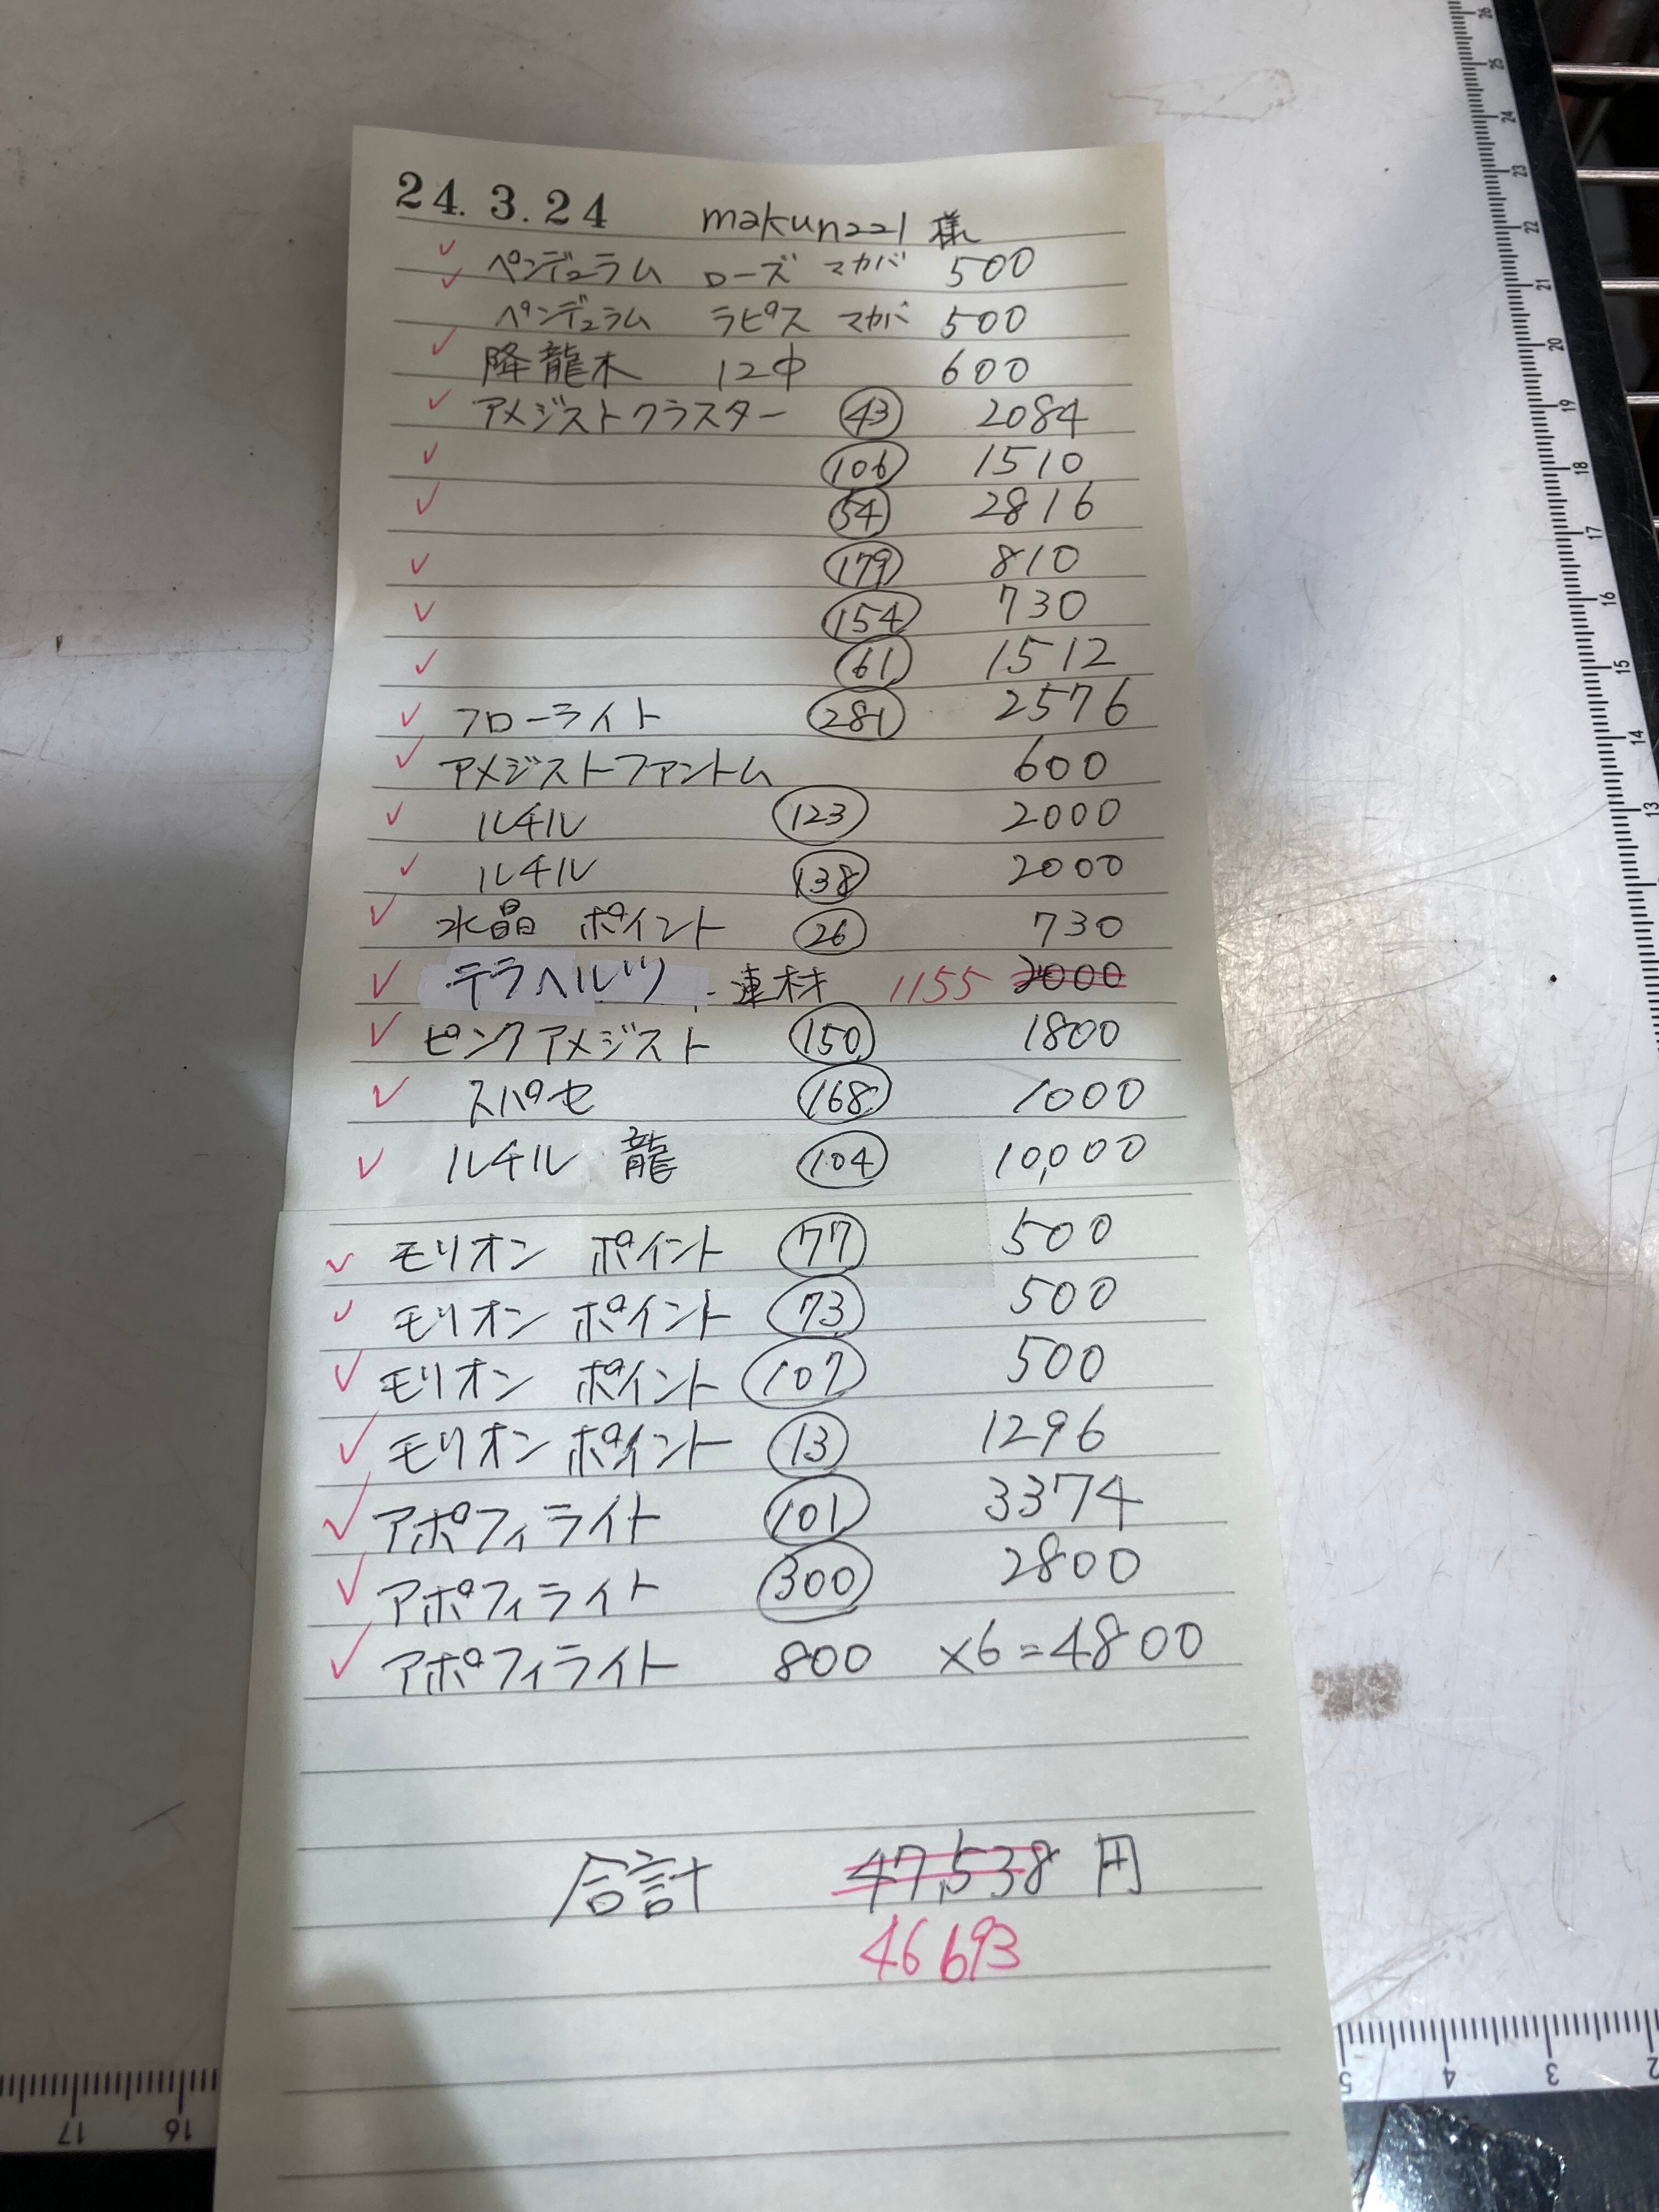 24. 3. 24 makunzz1 様
ペンデュラム ローズ マカバ 500
ペンデュラム ラピス マカバ 500
降龍木 12φ 600
アメジストクラスター 43 2084
106 1510
54 2816
179 810
154 730
61 1512
フローライト 281 2576
アメジストファントム 600
ルチル 123 2000
ルチル 138 2000
水晶 ポイント 26 730
テラヘルツ 連材 1155 2000
ピンクアメジスト 150 1800
スパセ 168 1000
ルチル 龍 104 10,000
モリオン ポイント 77 500
モリオン ポイント 73 500
モリオン ポイント 107 500
モリオン ポイント 13 1296
アポフィライト 101 3374
アポフィライト 300 2800
アポフィライト 800 ×6=4800
合計 47,538 円
46693
26
25
24
23
22
21
20
19
18
17
16
15
14
13
17 16
5 4 3 2